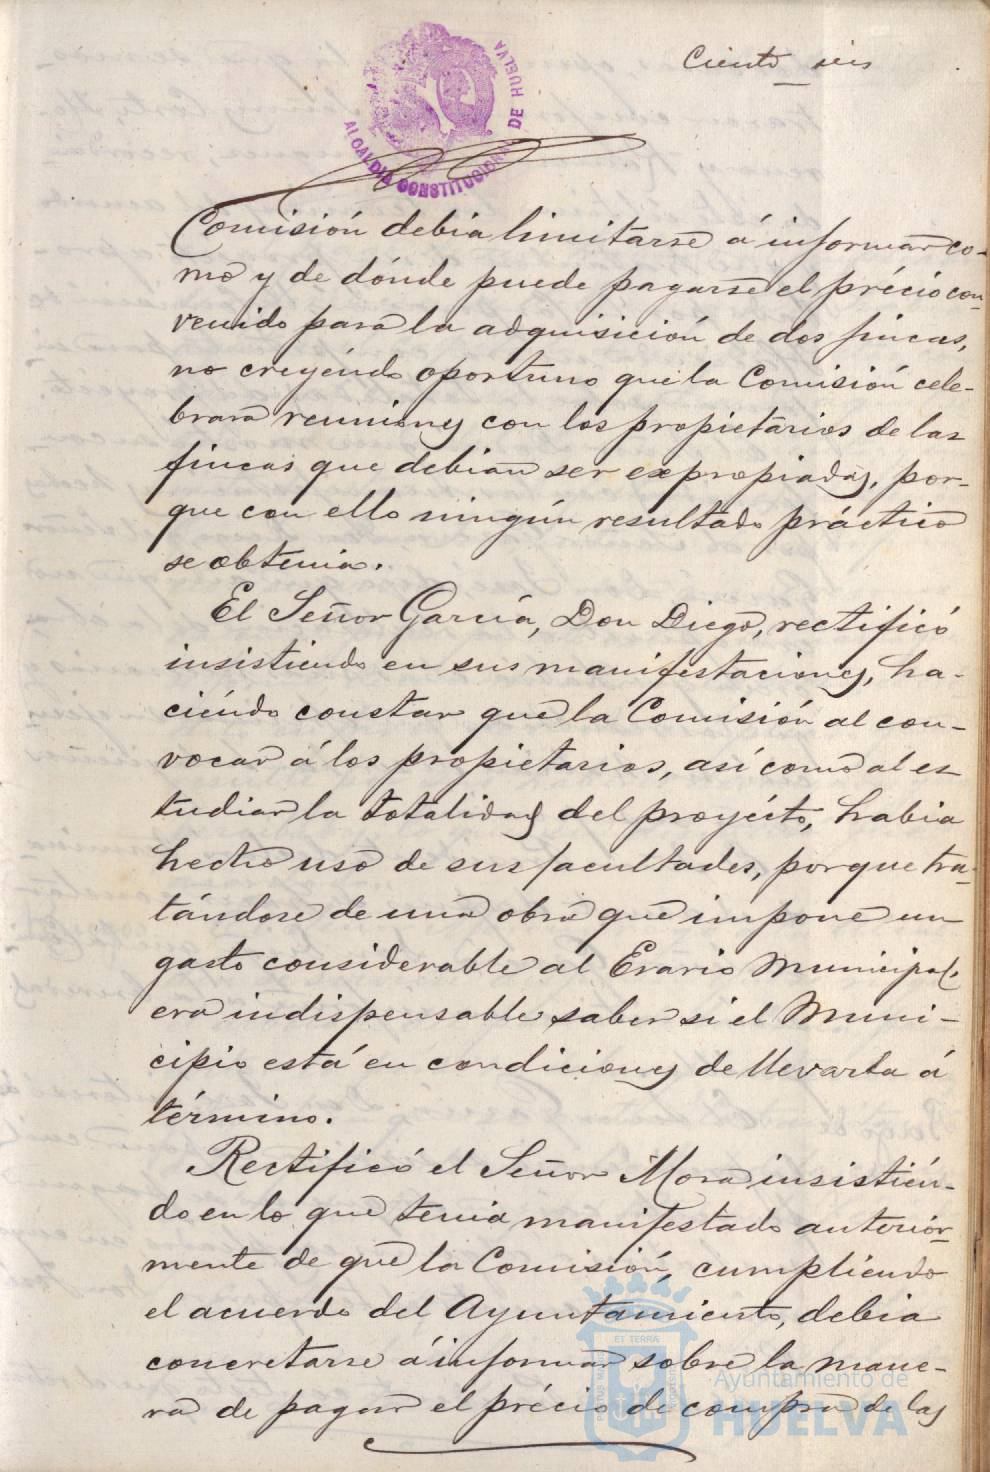 Ciento seis
ALCALDIA CONSTITUCIONAL DE HUELVA
Comisión debia limitarse á informar co-
mo y de dónde puede pagarse el précio con
venido para la adquisición de dos fincas,
no creyéndo oportuno que la Comisión cele-
brara reuniones con los propietários de las
fincas que debian ser expropiadas, por-
que con ello ningún resultado práctico
se obtenia.
El Señor García, Don Diego, rectificó
insistiendo en sus manifestaciones, ha-
ciéndo constar que la Comisión al con-
vocar á los propietarios, así como al es
tudiar la totalidad del proyécto, habia
hecho uso de sus facultades, porque tra-
tándose de una obra que impone un
gasto considerable al Erario Municipal,
era indispensable saber si el Muni-
cipio está en condiciones de llevarla á
término.
Rectificó el Señor Mora insistién-
do en lo que tenia manifestado anterior
mente de que la Comisión, cumpliendo
el acuerdo del Ayuntamiento, debia
concretarse á informar sobre la mane-
ra de pagar el précio de compra de las
ET TERRA
Ayuntamiento de
HUELVA